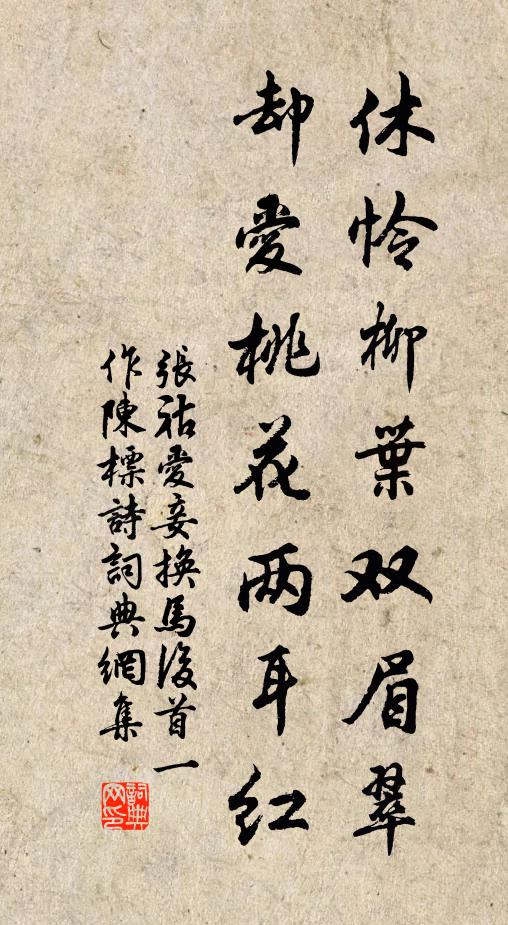 休怜柳葉双眉翠
却愛桃花两耳红
張祜愛妾換馬後首一
作陳標詩詞典網集
詞典网印